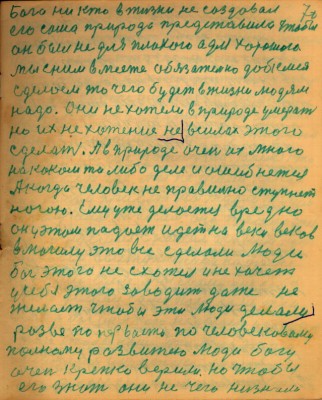 Бога никто в жизни не создовал 76
его сама природа представила чтобы
он был не для плохого а для хорошого
мы с ним вместе обязательно добьемся
сделоем то чего будет в жизни людям
надо. Они не хотели в природе умерат
но их не хотение не в силах этого
сделат. А в природе очен их много
на каком то либо деле и ошебнется
А когда человек не правильно ступнет
ногою. Ему уже делоется вредно
он у этом падоет идет на веки веков
в могилу это все сделали люди
бог этого не схотел и не хочет
у себя этого заводит даже не
желает чтобы эти люди делали
розве по прваста по человековому
полному развитию люди богу
очен крепко верили но чтобы
его знат они не чего низнали